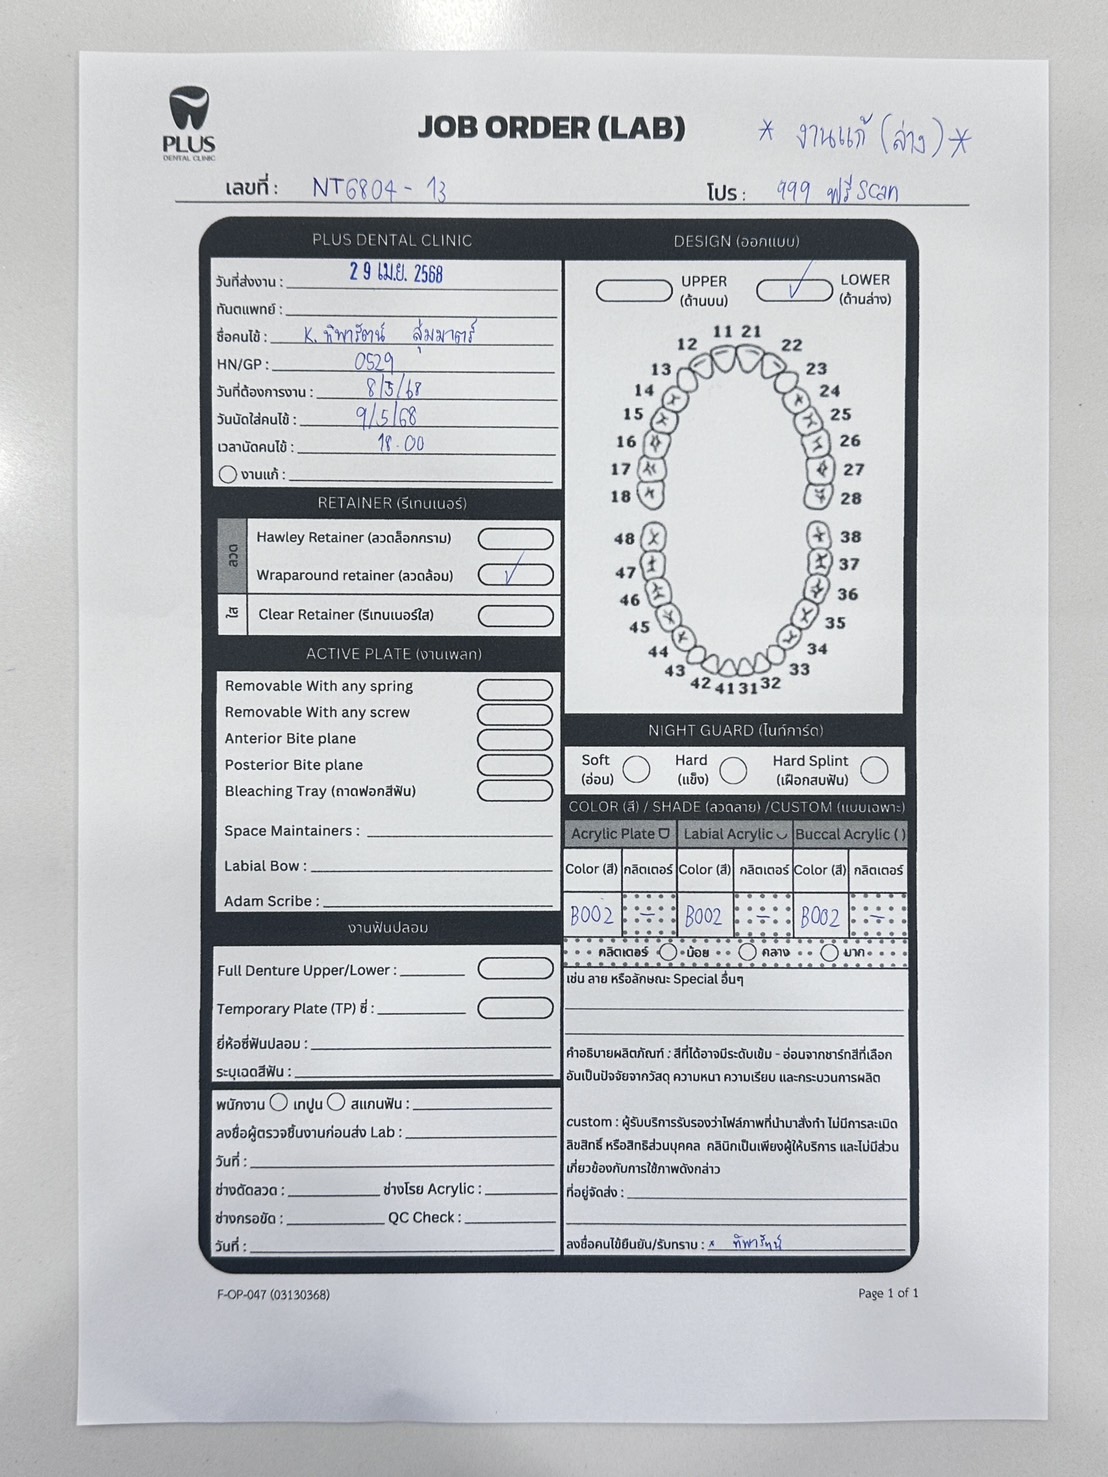 PLUS
DENTAL CLINIC
JOB ORDER (LAB)
* งานแก้ (ล่าง) *
เลขที่ : NT6804 - 13
โปร : 999 ฟรี scan
PLUS DENTAL CLINIC
วันที่ส่งงาน : 29 เม.ย. 2568
ทันตแพทย์ :
ชื่อคนไข้ : K. ทิพารัตน์ สุ่มมาตร์
HN/GP : 0529
วันที่ต้องการงาน : 8/5/68
วันนัดใส่คนไข้ : 9/5/68
เวลานัดคนไข้ : 18.00
งานแก้ :
RETAINER (รีเทนเนอร์)
ลวด
Hawley Retainer (ลวดล็อกกราม)
Wraparound retainer (ลวดล้อม) ✓
ใส
Clear Retainer (รีเทนเนอร์ใส)
ACTIVE PLATE (งานเพลท)
Removable With any spring
Removable With any screw
Anterior Bite plane
Posterior Bite plane
Bleaching Tray (ถาดฟอกสีฟัน)
Space Maintainers :
Labial Bow :
Adam Scribe :
งานฟันปลอม
Full Denture Upper/Lower :
Temporary Plate (TP) ซี่ :
ยี่ห้อซี่ฟันปลอม :
ระบุเฉดสีฟัน :
พนักงาน เทปูน สแกนฟัน :
ลงชื่อผู้ตรวจชิ้นงานก่อนส่ง Lab :
วันที่ :
ช่างดัดลวด : ช่างโรย Acrylic :
ช่างกรอขัด : QC Check :
วันที่ :
DESIGN (ออกแบบ)
UPPER
(ด้านบน)
✓ LOWER
(ด้านล่าง)
11 21
12 22
13 23
14 24
15 25
16 26
17 27
18 28
48 38
47 37
46 36
45 35
44 34
43 33
42 41 31 32
NIGHT GUARD (ไนท์การ์ด)
Soft
(อ่อน)
Hard
(แข็ง)
Hard Splint
(เฝือกสบฟัน)
COLOR (สี) / SHADE (ลวดลาย) /CUSTOM (แบบเฉพาะ)
Acrylic Plate Labial Acrylic Buccal Acrylic ( )
Color (สี) กลิตเตอร์ Color (สี) กลิตเตอร์ Color (สี) กลิตเตอร์
B002 - B002 - B002 -
กลิตเตอร์ น้อย กลาง มาก
เช่น ลาย หรือลักษณะ Special อื่นๆ
คำอธิบายผลิตภัณฑ์ : สีที่ได้อาจมีระดับเข้ม - อ่อนจากชาร์ทสีที่เลือก
อันเป็นปัจจัยจากวัสดุ ความหนา ความเรียบ และกระบวนการผลิต
custom : ผู้รับบริการรับรองว่าไฟล์ภาพที่นำมาสั่งทำ ไม่มีการละเมิด
ลิขสิทธิ์ หรือสิทธิส่วนบุคคล คลินิกเป็นเพียงผู้ให้บริการ และไม่มีส่วน
เกี่ยวข้องกับการใช้ภาพดังกล่าว
ที่อยู่จัดส่ง :
ลงชื่อคนไข้ยืนยัน/รับทราบ : x ทิพารัตน์
F-OP-047 (03130368)
Page 1 of 1